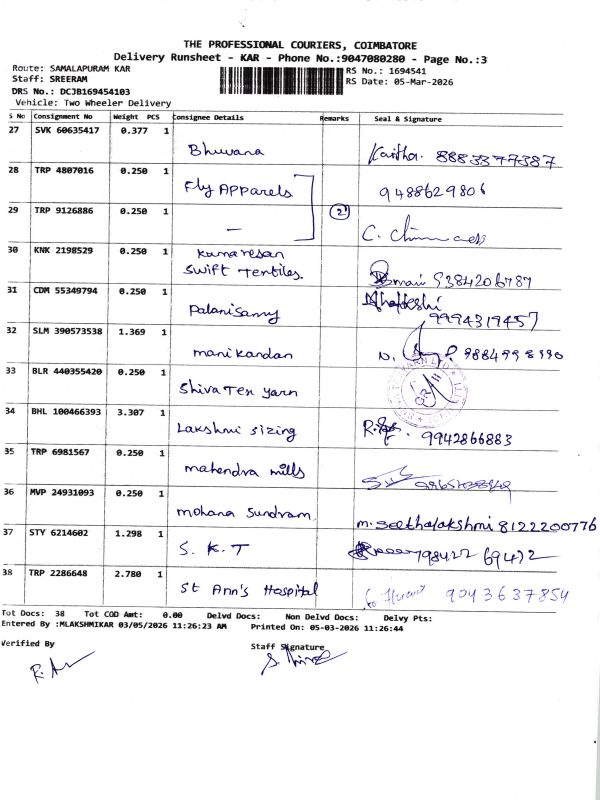 THE PROFESSIONAL COURIERS, COIMBATORE
Delivery Runsheet - KAR - Phone No.:9047080280 - Page No.:3
Route: SAMALAPURAM KAR
RS No.: 1694541
Staff: SREERAM
RS Date: 05-Mar-2026
DRS No.: DCJB169454103
Vehicle: Two Wheeler Delivery
S No Consignment No Weight PCS Consignee Details Remarks Seal & Signature
27 SVK 60635417 0.377 1 Bhuvana 8883377387
28 TRP 4807016 0.250 1 Fly Apparels 9488629806
29 TRP 9126886 0.250 1 — 2 C.
30 KNK 2198529 0.250 1 Kumaresan
Swift Textiles 9384206787
31 CDM 55349794 0.250 1 Palanisamy 9994319457
32 SLM 390573538 1.369 1 manikandan
33 BLR 440355420 0.250 1 Shiva Tex yarn
34 BHL 100466393 3.307 1 Lakshmi sizing 9942866883
35 TRP 6981567 0.250 1 mahendra mills
36 MVP 24931093 0.250 1 mohana Sundram m. Seethalakshmi 8122200776
37 STY 6214602 1.298 1 S. K. T
38 TRP 2286648 2.780 1 St Ann's Hospital 9043637854
Tot Docs: 38 Tot COD Amt: 0.00 Delvd Docs: Non Delvd Docs: Delvy Pts:
Entered By :MLAKSHMIKAR 03/05/2026 11:26:23 AM Printed On: 05-03-2026 11:26:44
Verified By
Staff Signature